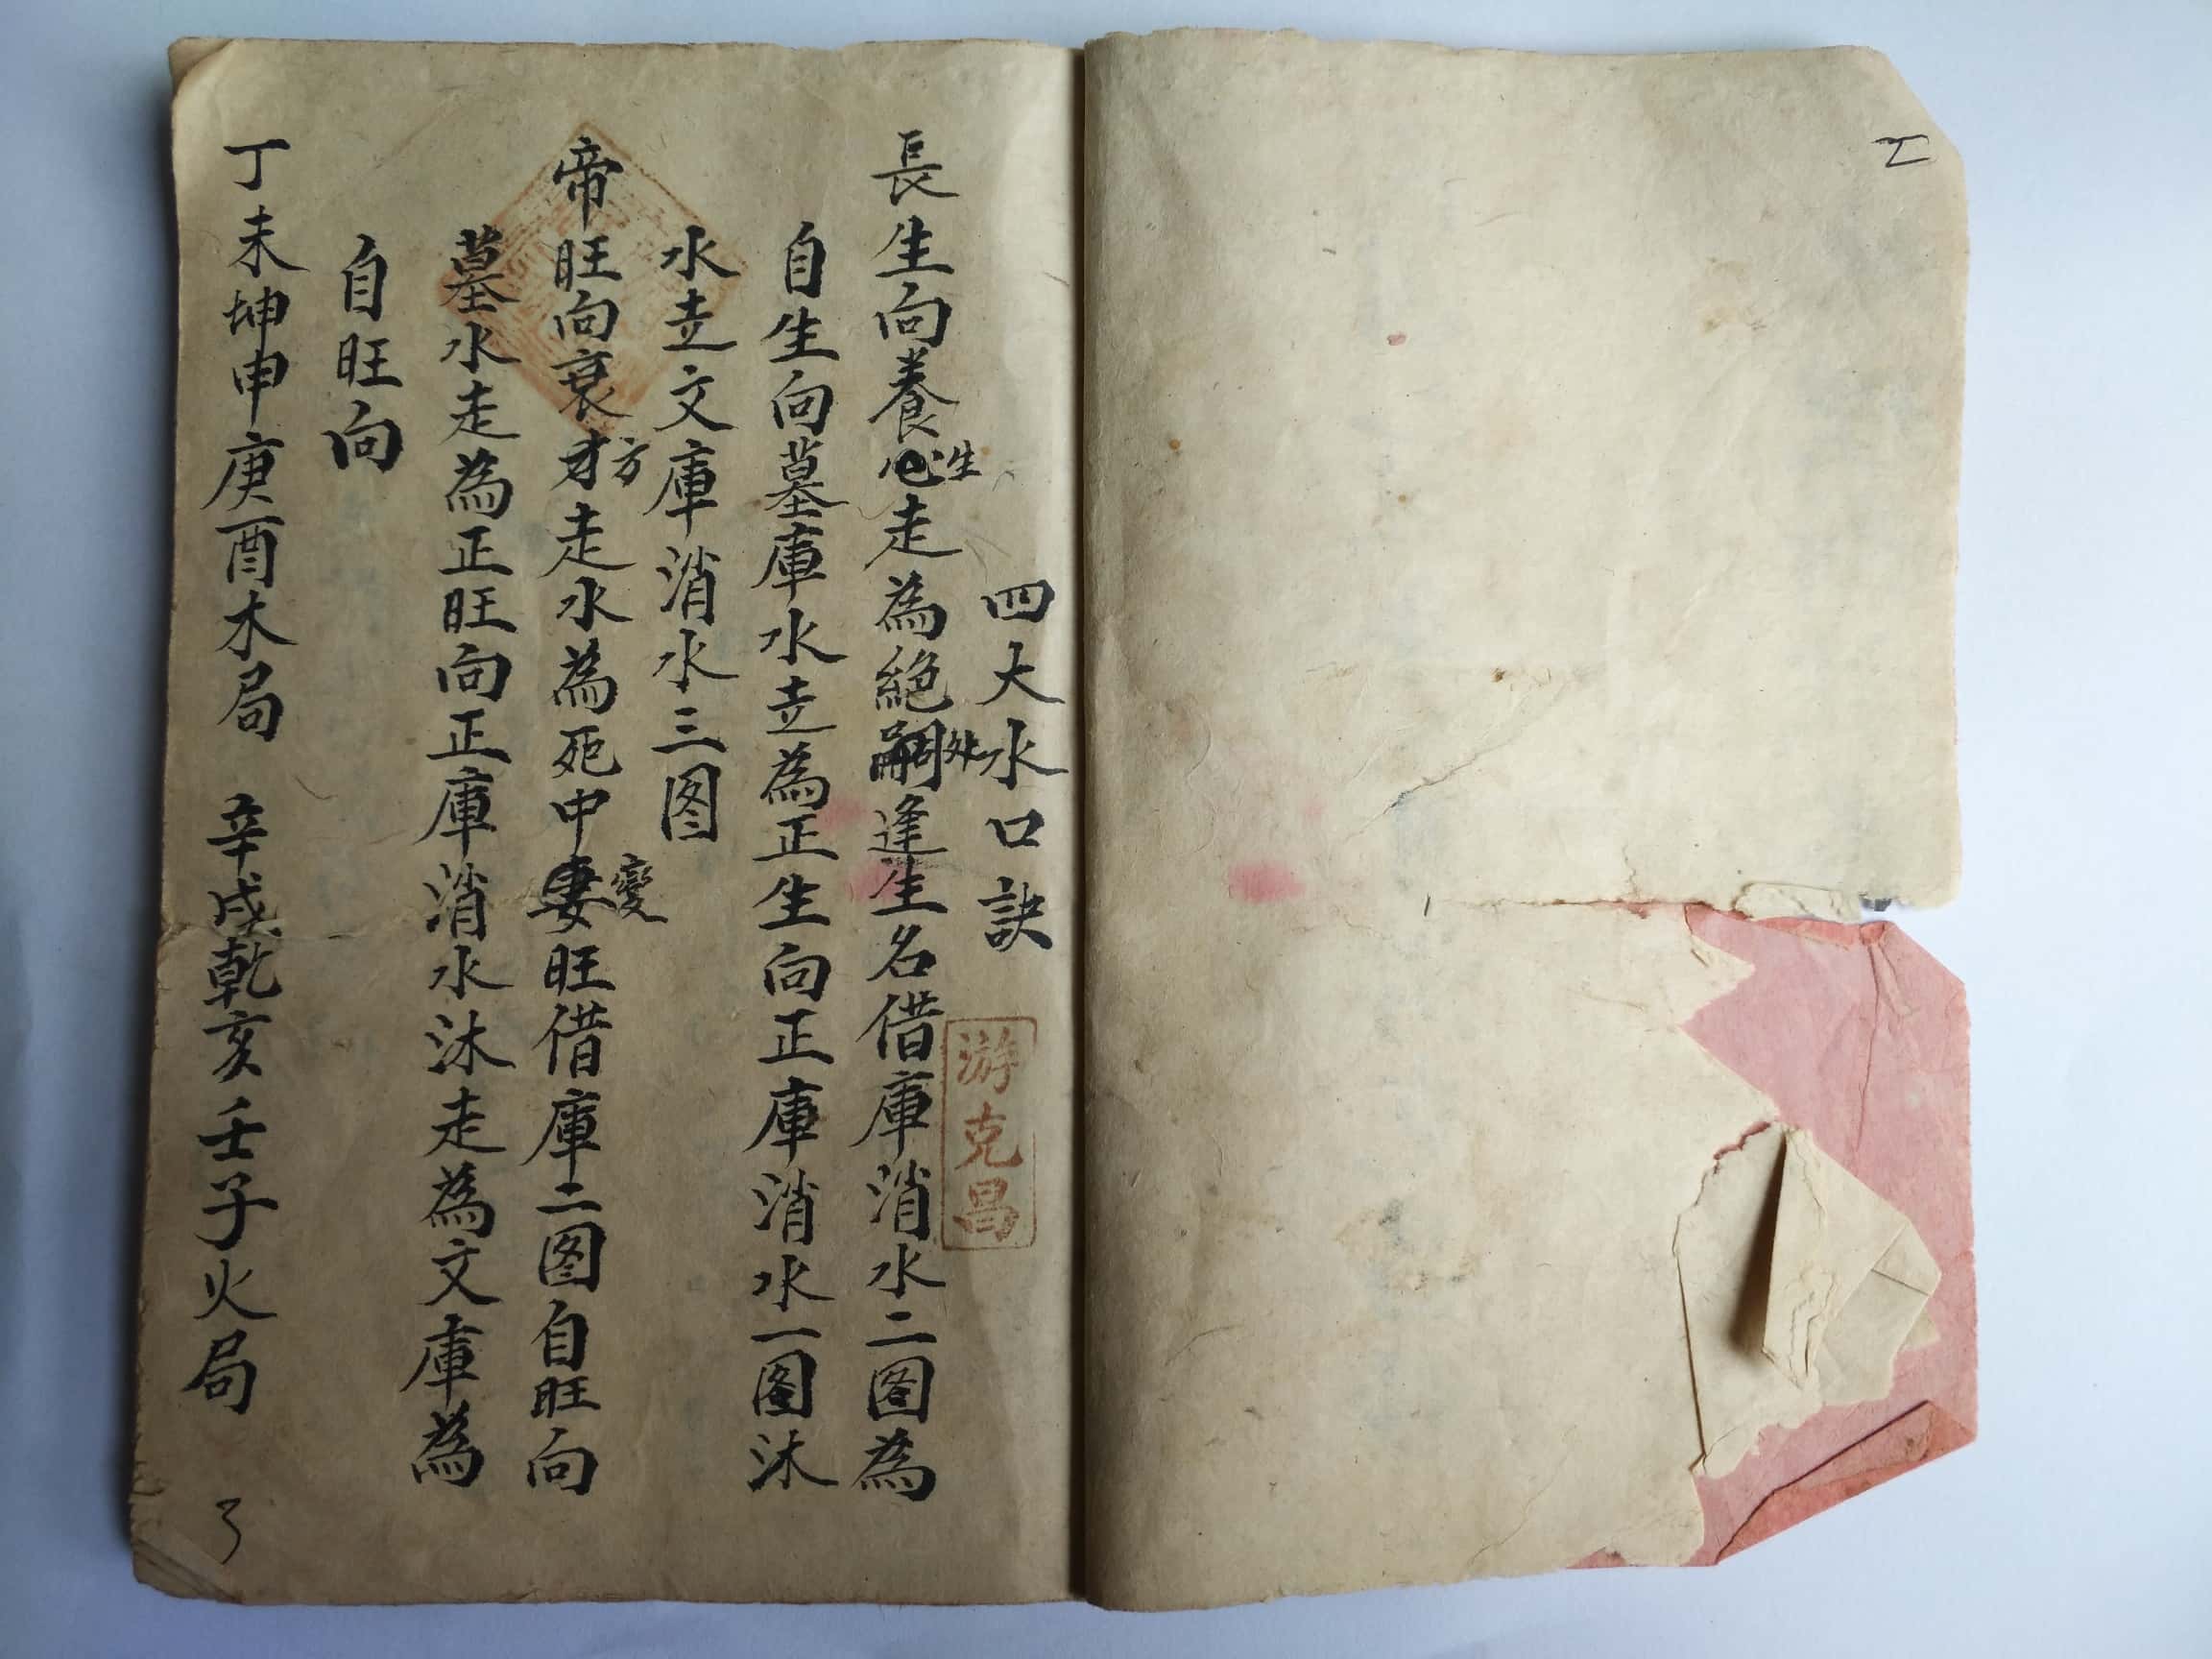 四大水口訣
游克昌
長生向養生走為絕處逢生名借庫消水二图為
自生向墓庫水立為正生向正庫消水一图沐
水立文庫消水三图
帝旺向衰方走水為死中變旺借庫二图自旺向
墓水走為正旺向正庫消水沐走為文庫為
自旺向
丁未坤申庚酉木局 辛戌乾亥壬子火局
3